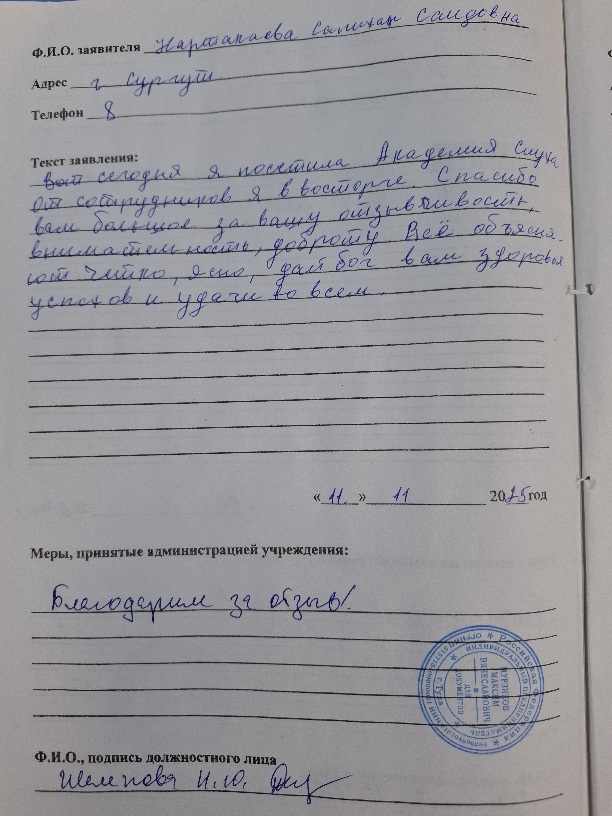 Ф.И.О. заявителя Нартакаева Салихат Саидовна
Адрес г Сургут
Телефон 8
Текст заявления:
Вот сегодня я посетила Академия Слуха
От сотрудников я в восторге. Спасибо
вам большое за вашу отзывчивость,
внимательность, доброту Всё объясня-
ют чётко, ясно, дай бог вам здоровья
успехов и удачи во всем
« 11 » 11 2025 год
Меры, принятые администрацией учреждения:
Благодарим за отзыв!
Российская Федерация
ИНДИВИДУАЛЬНЫЙ ПРЕДПРИНИМАТЕЛЬ
МАКСИМ
ВЯЧЕСЛАВОВИЧ
ДЛЯ
ДОКУМЕНТОВ
г.Тула
Ф.И.О., подпись должностного лица
Шелепова Н.Ю.